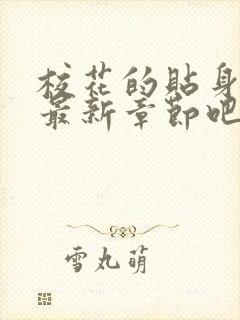 校花的貼身
最新章節吧
雪丸萌